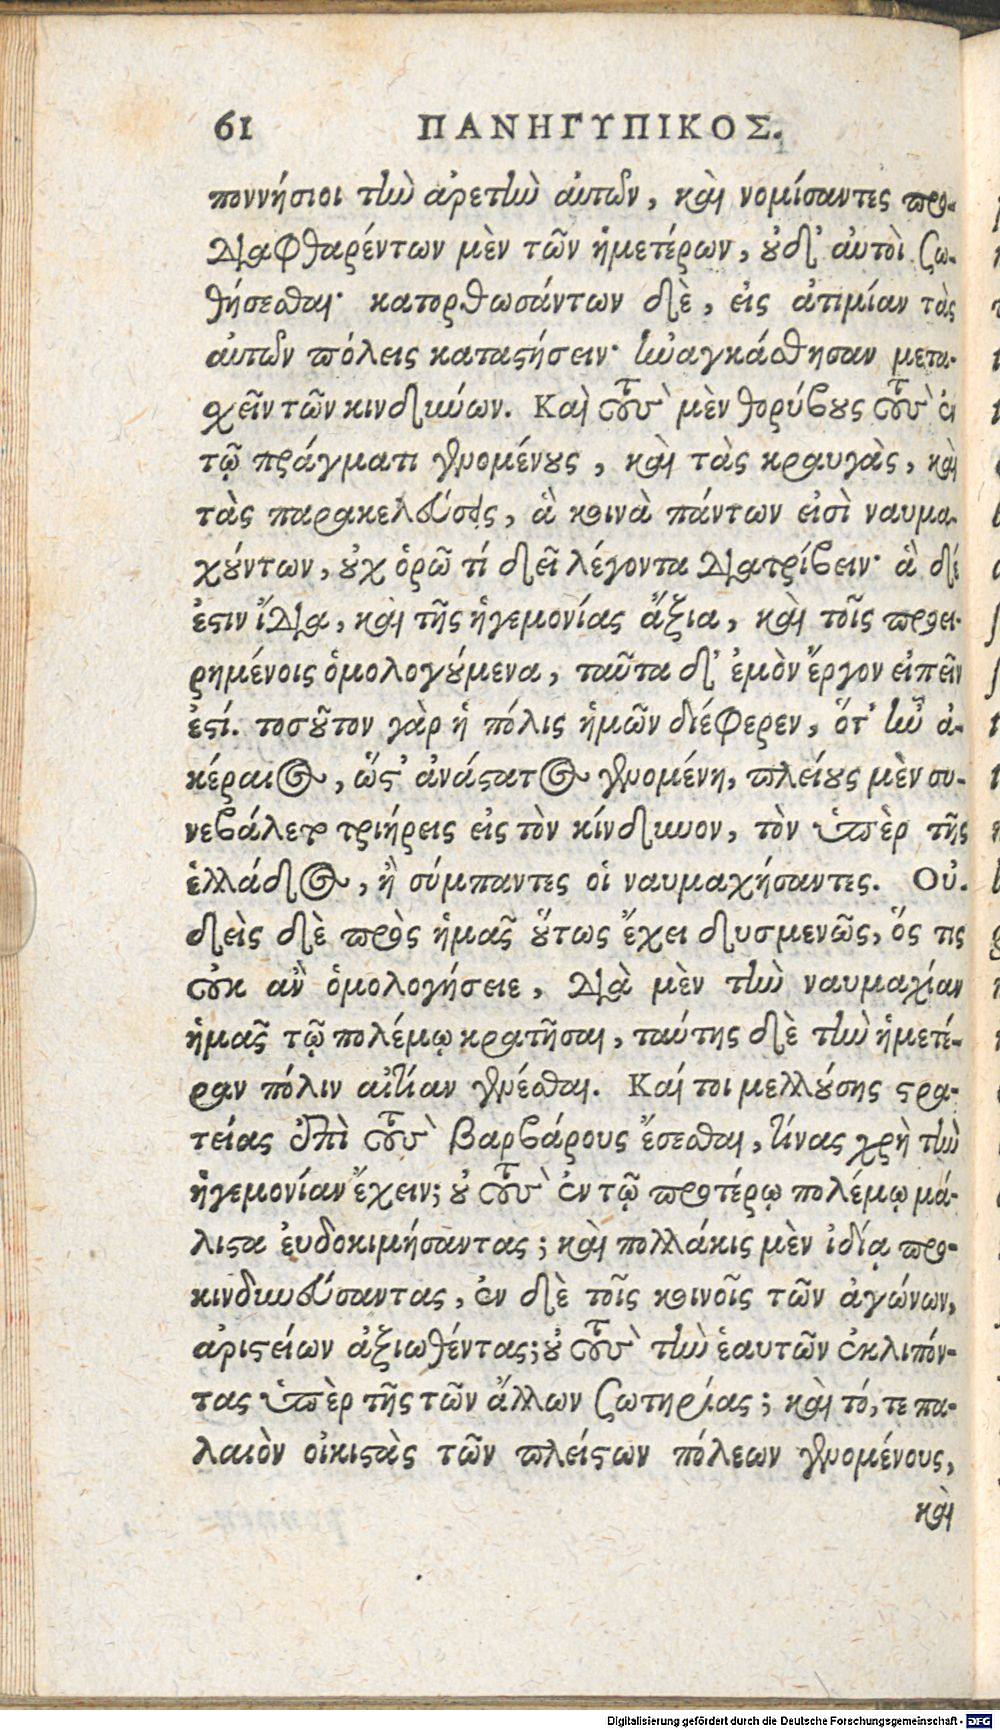 61 ΠΑΝΗΓΥΠΙΚΟΣ.
ποννήσιοι τὴν ἀρετὴν αὐτῶν, καὶ νομίσαντες προ-
διαφθαρέντων μὲν τῶν ἡμετέρων, οὐδ' αὐτοὶ σω-
θήσεσθαι· κατορθωσάντων δὲ, εἰς ἀτιμίαν τὰς
αὐτῶν πόλεις καταστήσειν· ἠναγκάσθησαν μετα-
σχεῖν τῶν κινδύνων. Καὶ τοὺς μὲν θορύβους τοὺς ἐν
τῷ πράγματι γενομένους, καὶ τὰς κραυγὰς, καὶ
τὰς παρακελεύσεις, ἃ κοινὰ πάντων εἰσὶ ναυμα-
χούντων, οὐχ ὁρῶ τί δεῖ λέγοντα διατρίβειν· ἃ δέ
ἐστιν ἴδια, καὶ τῆς ἡγεμονίας ἄξια, καὶ τοῖς προει-
ρημένοις ὁμολογούμενα, ταῦτα δ' ἐμὸν ἔργον εἰπεῖν
ἐστί. τοσοῦτον γὰρ ἡ πόλις ἡμῶν διέφερεν, ὅτ' ἦν ἀ-
κέραιος, ὥστ' ἀνάστατος γενομένη, πλείους μὲν συ-
νεβάλετο τριήρεις εἰς τὸν κίνδυνον, τὸν ὑπὲρ τῆς
ἑλλάδος, ἢ σύμπαντες οἱ ναυμαχήσαντες. Οὐ-
δεὶς δὲ πρὸς ἡμᾶς οὕτως ἔχει δυσμενῶς, ὅς τις
οὐκ ἂν ὁμολογήσειε, διὰ μὲν τὴν ναυμαχίαν
ἡμᾶς τῷ πολέμῳ κρατῆσαι, ταύτης δὲ τὴν ἡμετέ-
ραν πόλιν αἰτίαν γενέσθαι. Καί τοι μελλούσης στρα-
τείας ἐπὶ τοὺς βαρβάρους ἔσεσθαι, τίνας χρὴ τὴν
ἡγεμονίαν ἔχειν; οὐ τοὺς ἐν τῷ προτέρῳ πολέμῳ μά-
λιστα εὐδοκιμήσαντας; καὶ πολλάκις μὲν ἰδίᾳ προ-
κινδυνεύσαντας, ἐν δὲ τοῖς κοινοῖς τῶν ἀγώνων,
ἀριστείων ἀξιωθέντας; οὐ τοὺς τὴν ἑαυτῶν ἐκλιπόν-
τας ὑπὲρ τῆς τῶν ἄλλων σωτηρίας; καὶ τό, τε πα-
λαιὸν οἰκιστὰς τῶν πλείστων πόλεων γενομένους,
καὶ
Digitalisierung gefördert durch die Deutsche Forschungsgemeinschaft - DFG